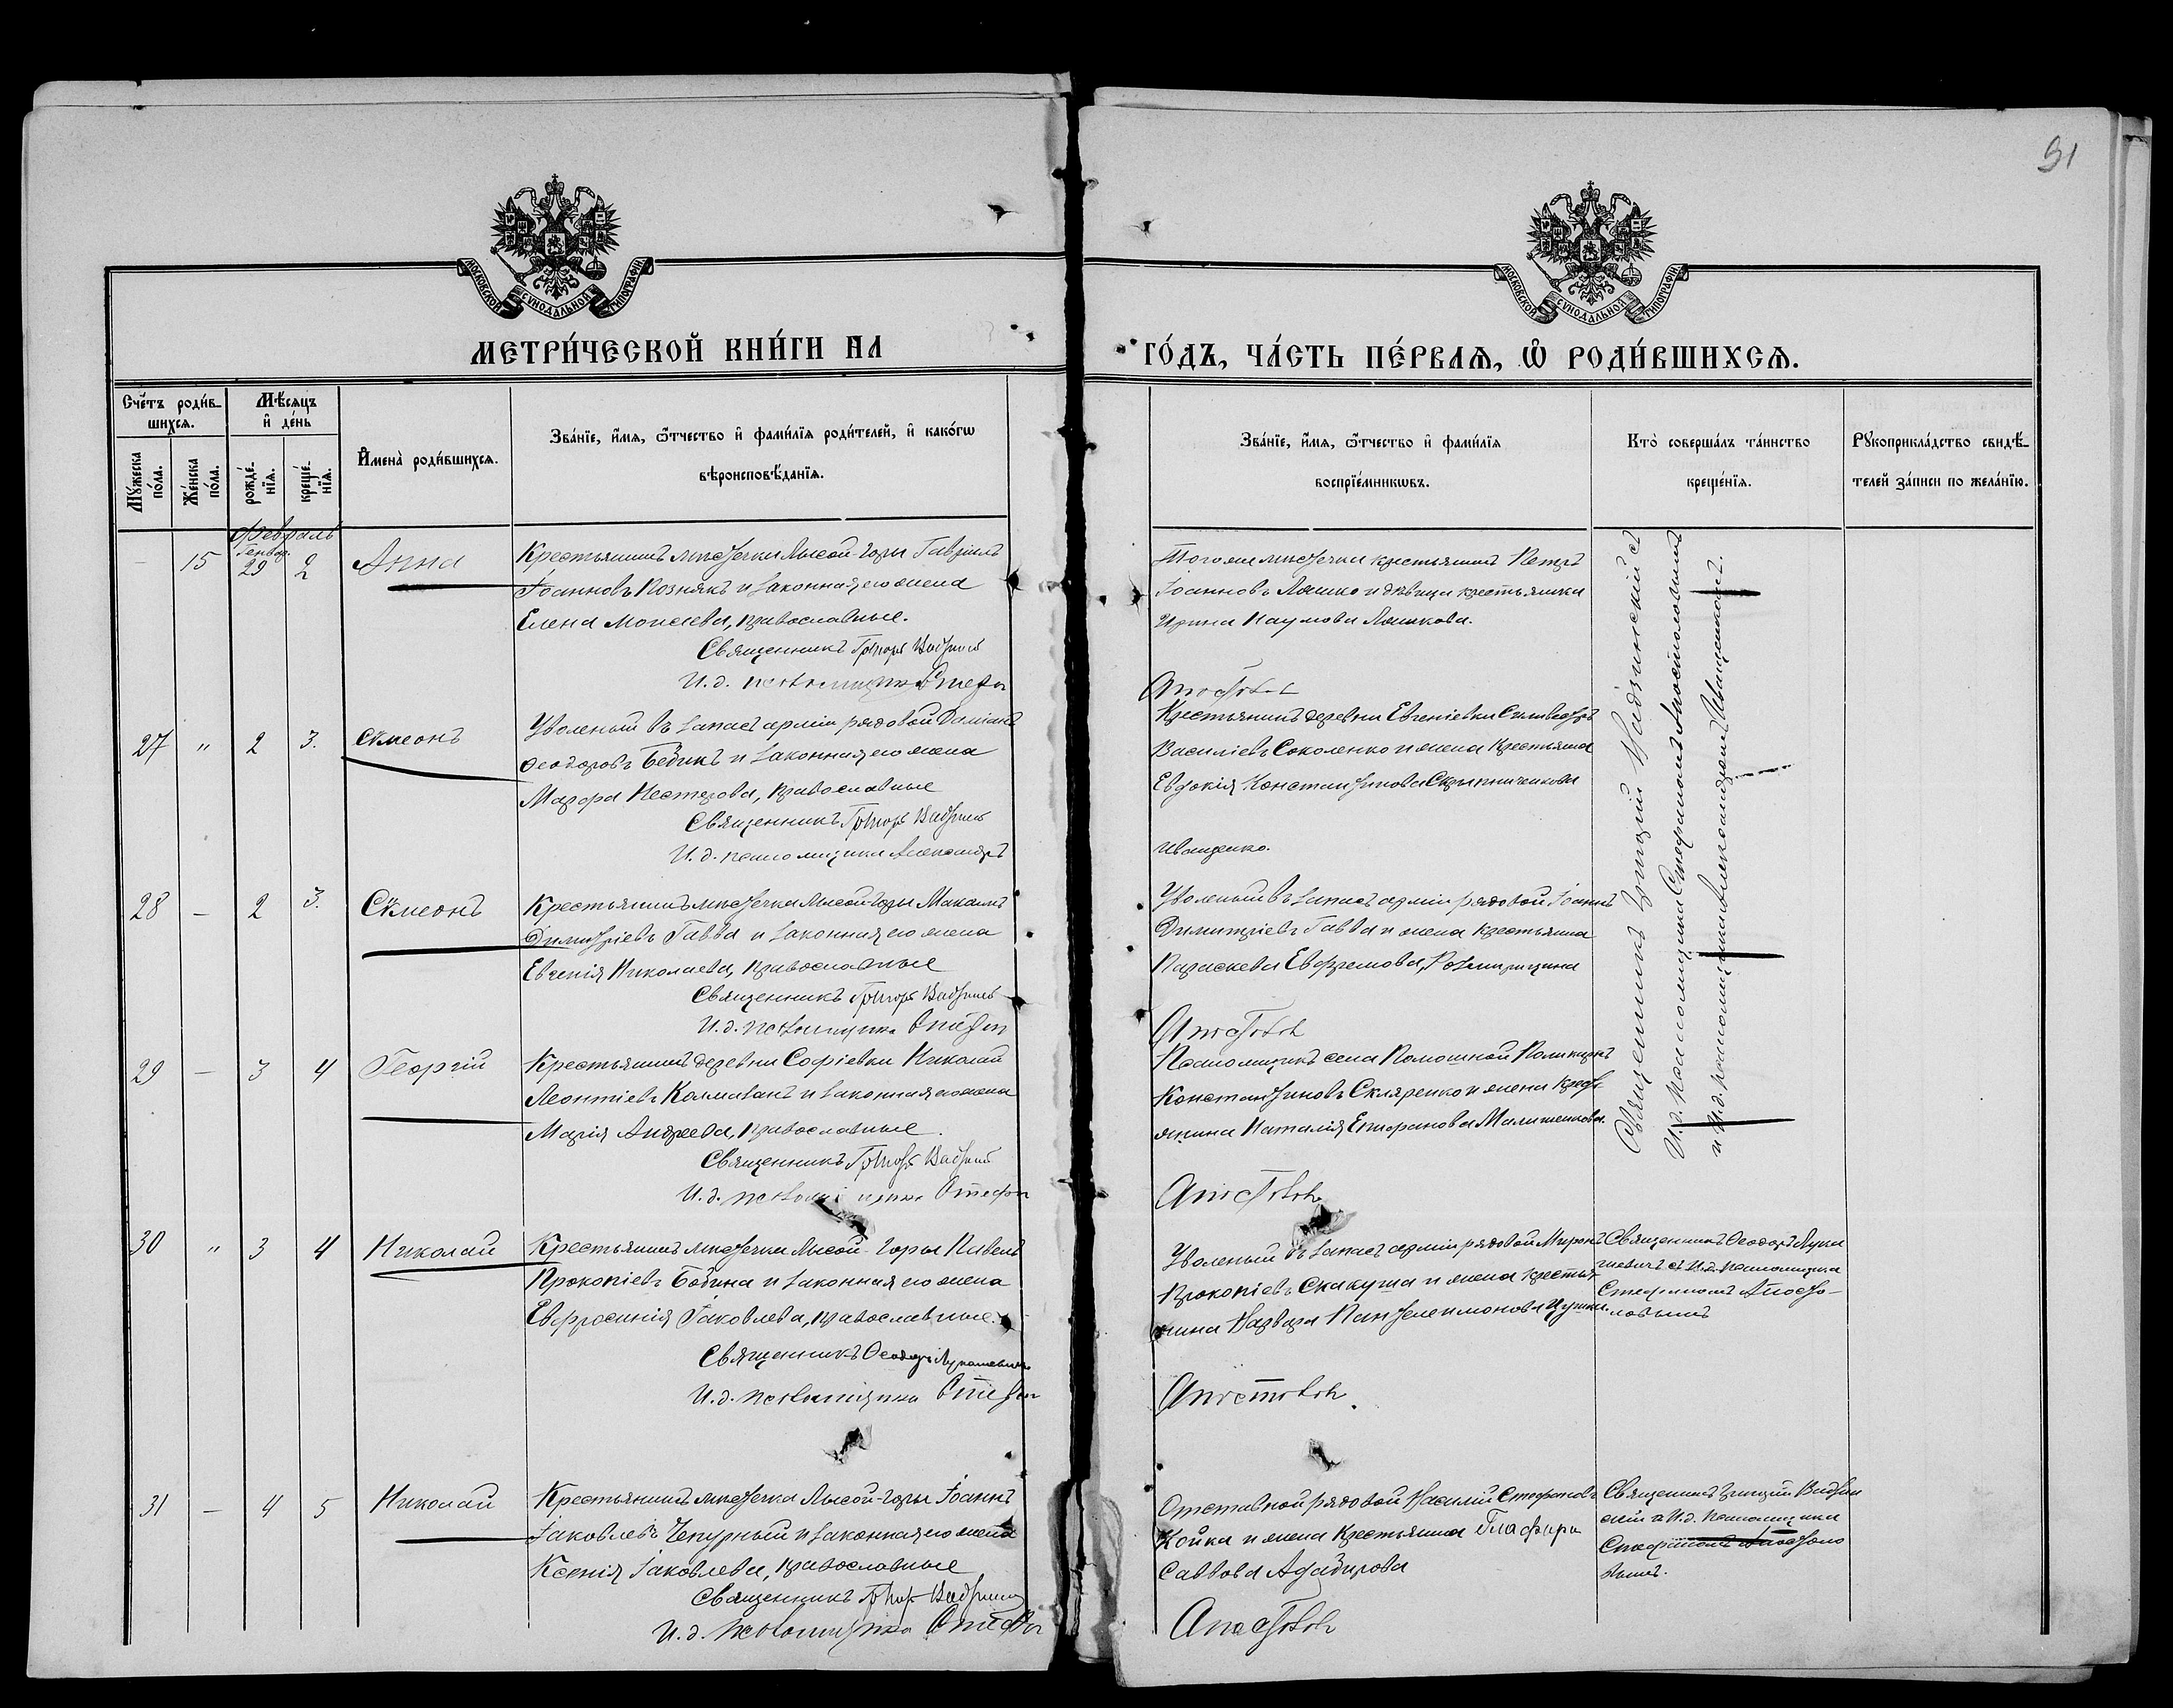 91
МОСКОВСКОЙ СУНОДАЛЬНОЙ ТИПОГРАФІИ
МОСКОВСКОЙ СУНОДАЛЬНОЙ ТИПОГРАФІИ
МЕТРИ́ЧЕСКОЙ КНИ́ГИ НА
ГО́ДЪ, ЧА́СТЬ ПЕ́РВАѦ, Ѡ РОДИ́ВШИХСѦ.
Сче́тъ роди́вшихсѧ.
Мꙋ́жеска по́ла.
Же́нска по́ла.
Мѣ́сѧцъ и҆ де́нь
рожде́нїѧ.
креще́нїѧ.
И҆мена̀ роди́вшихсѧ.
Зва́нїе, и҆́мѧ, ѻ҆́тчество и҆ фами́лїѧ роди́телей, и҆ како́гѡ
вѣроисповѣ́данїѧ.
Зва́нїе, и҆́мѧ, ѻ҆́тчество и҆ фами́лїѧ
воспрїе́мникѡвъ.
Кто̀ соверша́лъ та́инство
креще́нїѧ.
Рꙋкоприкла́дство свидѣ́телей за́писи по жела́нїю.
Февраль
– 15 Генвар. 29 2 Анна
Крестьянинъ мѣстечка Лысой-Горы Гавріилъ
Іоанновъ Познякъ и законная его жена
Елена Моисеева, православные.
Священникъ
И.д. псаломщика Стефан
Тогоже мѣстечка крестьянинъ Петръ
Іоанновъ Ляшко и дѣвица крестьянка
Ирина Наумова Ляшкова.
Апостолов
Священникъ Григорій с
И.д. псаломщика Стефаномъ Апостоловымъ
и И.д. псаломщика Александромъ Иващенкомъ.
27 " 2 3. Сѵмеонъ
Уволеный въ запасъ арміи рядовой Даміанъ
Ѳеодоровъ Бедикъ и законная его жена
Марфа Нестерова, православные
Священникъ
И.д. псаломщика Александръ
Крестьянинъ деревни Евгеніевки Сильвестръ
Василіевъ Соколенко и жена крестьянина
Евдокія Константинова Скрипниченкова
Иващенко.
28 – 2 3. Сѵмеонъ
Крестьянинъ мѣстечка Лысой-Горы Максимъ
Димитріевъ Гавва и законная его жена
Евгенія Николаева, православные
Священникъ
И.д. псаломщика Стефан
Уволеный въ запасъ арміи рядовой Іоаннъ
Димитріевъ Гавва и жена крестьянина
Параскева Евфремова
Апостолов
29 – 3 4 Георгій
Крестьянинъ деревни Софіевки Николай
Леонтіевъ и законная его жена
Марія Андреева, православные.
Священникъ
И.д. псаломщика Стефан
Псаломщикъ села Помошной Поликарпъ
Константиновъ Скляренко и жена крестьянина Наталія Епифанова
Апостолов
30 " 3 4 Николай
Крестьянинъ мѣстечка Лысой-Горы Павелъ
Прокопіевъ и законная его жена
Евфросинія Іаковлева, православные.
Священникъ Ѳеодоръ
И.д. псаломщика Стефан
Уволеный въ запасъ арміи рядовой Миронъ
Прокопіевъ Скакуша и жена крестьянина Варвара Пантелеимонова
Апостолов.
Священникъ Ѳеодоръ
с И.д. псаломщика
Стефаномъ Апостоловымъ
31 – 4 5 Николай
Крестьянинъ мѣстечка Лысой-Горы Іоаннъ
Іаковлевъ Чепурный и законная его жена
Ксенія Іаковлева, православные
Священникъ
И.д. псаломщика Стефан
Отставной рядовой Василій Стефановъ
Койка и жена крестьянина Глафира
Саввова
Апостолов
Священникъ Григорій
и И.д. псаломщика
Стефаномъ Апостоловымъ.